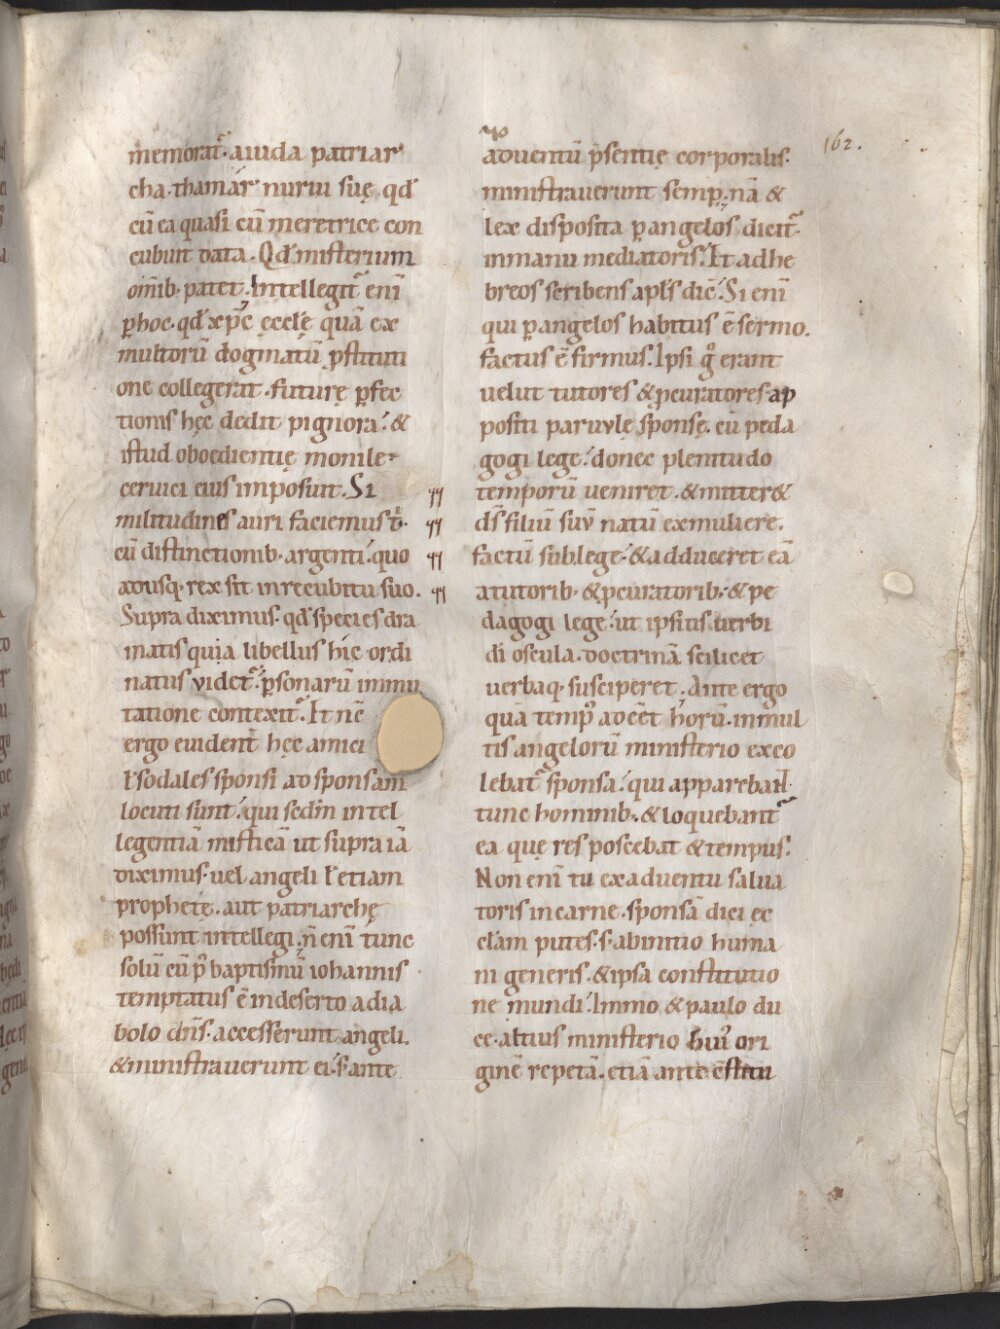 memorat᷒·aiuda patriar
cha·thamár nurui suę·qd̛
cū ea quasi cū meretrice con
cubuit data·Qd̛ misterium
omīb·patet·Intellegit᷒ enī
ꝑhoc·qd̛ xp̄c ęcclę quā ex
multorū dogmatū ꝓstituti
one collegerat·futurę ꝑfec
tionis hęc dedit pignora·&
istud oboedientię monile
ceruici eius imposuit·Si
militudines auri faciemus t̄·
cū distinctionib·argenti·quo
adusq·rex sit inrecubitu suo.
Supra diximus·qd̛ species dra
matis quia libellus hic ordi
natus videt᷒·ꝑsonarū immu
tatione contexit᷒·Et nc̄
ergo euident̄ hęc amici
ł sodales sponsi ad sponsam
locuti sunt·qui sedm̄ intel
legentiā misticā ut supra iā
diximus·uel angeli ł etiam
prophetę·aut patriarchę
possunt intellegi·ñ enī tunc
solū cū p᷒ baptismū iohannis
temptatus ē indeserto adia
bolo dn̄s·accesserunt angeli.
&ministrauerunt ei·s; ante
162.
aduentū p̄sentię corporalis·
ministrauerunt semꝑ·nā &
lex disposita ꝑ angelos dicit᷒·
inmanu mediatoris·Et adhe
breos scribens apl̄s dic̄·Si enī
qui ꝑ angelos habitus ē sermo.
factus ē firmus·Ipsi gͦ erant
uelut tutores &ꝓcuratores·ap
positi paruvlę sponsę·cū peda
gogi lege·donec plenitudo
temporū ueniret·&mitter&
ds̄ filiū suū natū exmuliere.
factū sublege·&adduceret eā
atutorib·&ꝓcuratorib·&pe
dagogi lege·ut ipsius uerbi
dī oscula·doctrinā scilicet
uerbaq·susciperet·Ante ergo
quā temp᷒ adeēt horū·inmul
tis angelorū ministerio exco
lebat᷒ sponsa·qui apparebant
tunc hominib·&loquebant᷒
ea quę res poscebat &tempus·
Non enī tu exaduentu salua
toris incarne·sponsā dici ec
cl̄am putes·s; abinitio huma
ni generis·&ipsa constitutio
ne mundi·Immo &paulo du
ce·altius ministerio hui᷒ ori
ginē repetā·etiā ante cōstitu